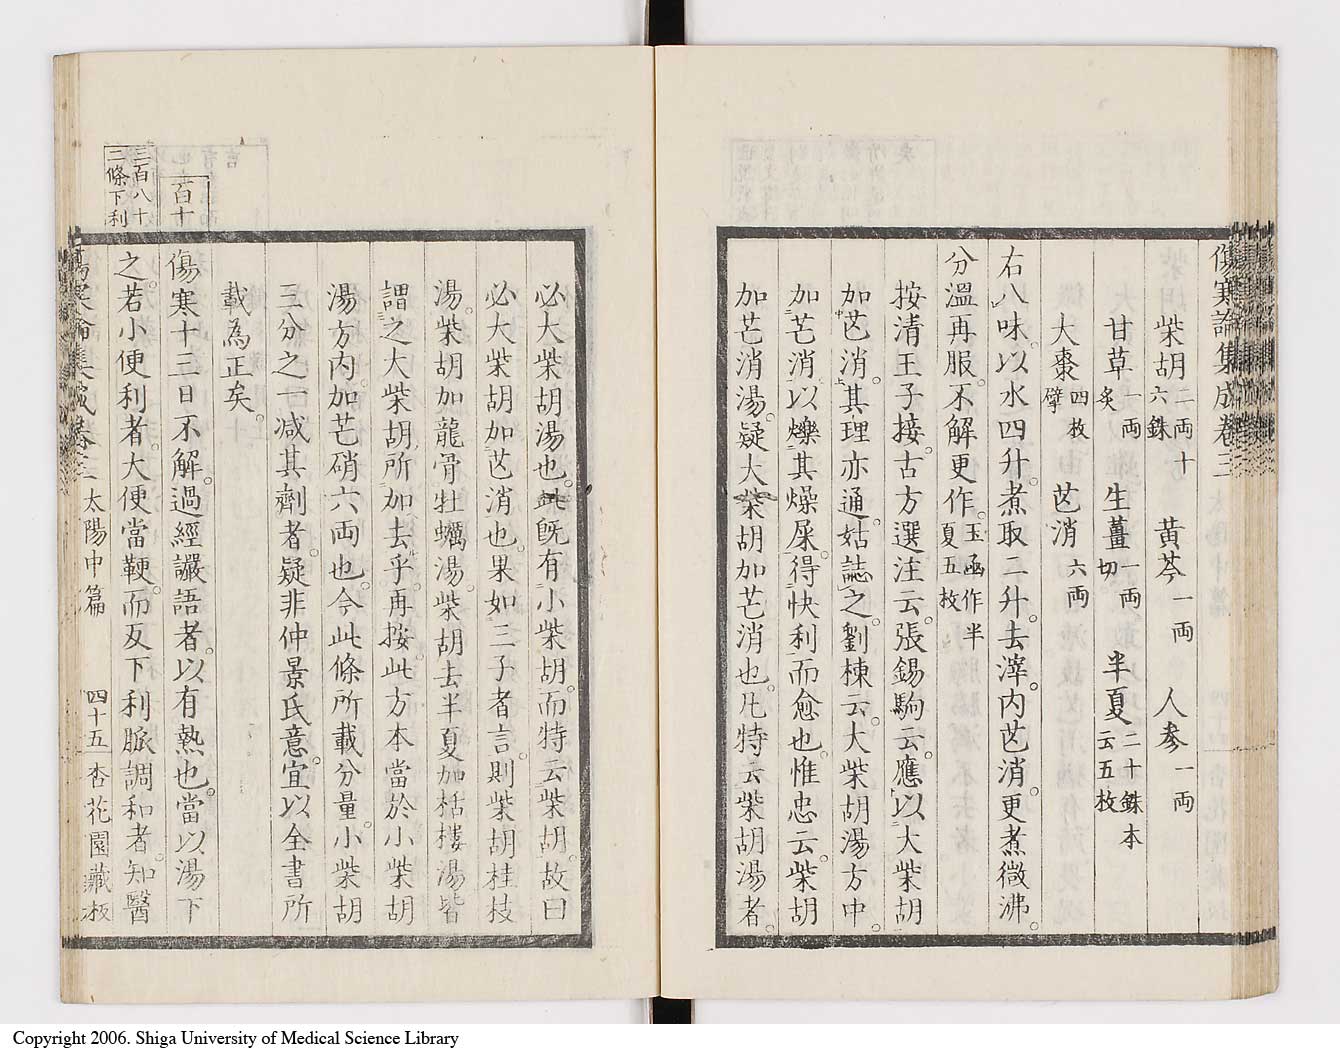 傷寒論集成卷三
柴胡二両十六銖 黄芩一両 人參一両
甘草一両炙 生薑一両切 半夏二十銖本云五枚
大棗四枚擘 芒消六両
右八味。以水四升。煮取二升。去滓。内芒消。更煮微沸。
分溫再服。不解更作。玉函作半夏五枚
按清王子接。古方選注云。張錫駒云。應以大柴胡
加芒消。其理亦通。姑誌之。劉棟云。大柴胡湯方中。
加芒消以爍其燥屎。得快利而愈也。惟忠云。柴胡
加芒消湯。疑大柴胡加芒消也。凡特云柴胡湯者。
必大柴胡湯也。此既有小柴胡。而特云柴胡。故曰
必大柴胡加芒消也。果如三子者言。則柴胡桂枝
湯。柴胡加龍骨牡蠣湯。柴胡去半夏加栝樓湯。皆
謂之大柴胡所加去乎。再按。此方本當於小柴胡
湯方内。加芒硝六両也。今此條所載分量。小柴胡
三分之一。減其劑者。疑非仲景氏意。宜以全書所
載為正矣。
百十
傷寒十三日不解。過經讝語者。以有熱也。當以湯下
三百八十二條下利
之。若小便利者。大便當鞕。而反下利脈調和者。知醫
傷寒論集成卷三 太陽中篇 四十五 杏花園藏板